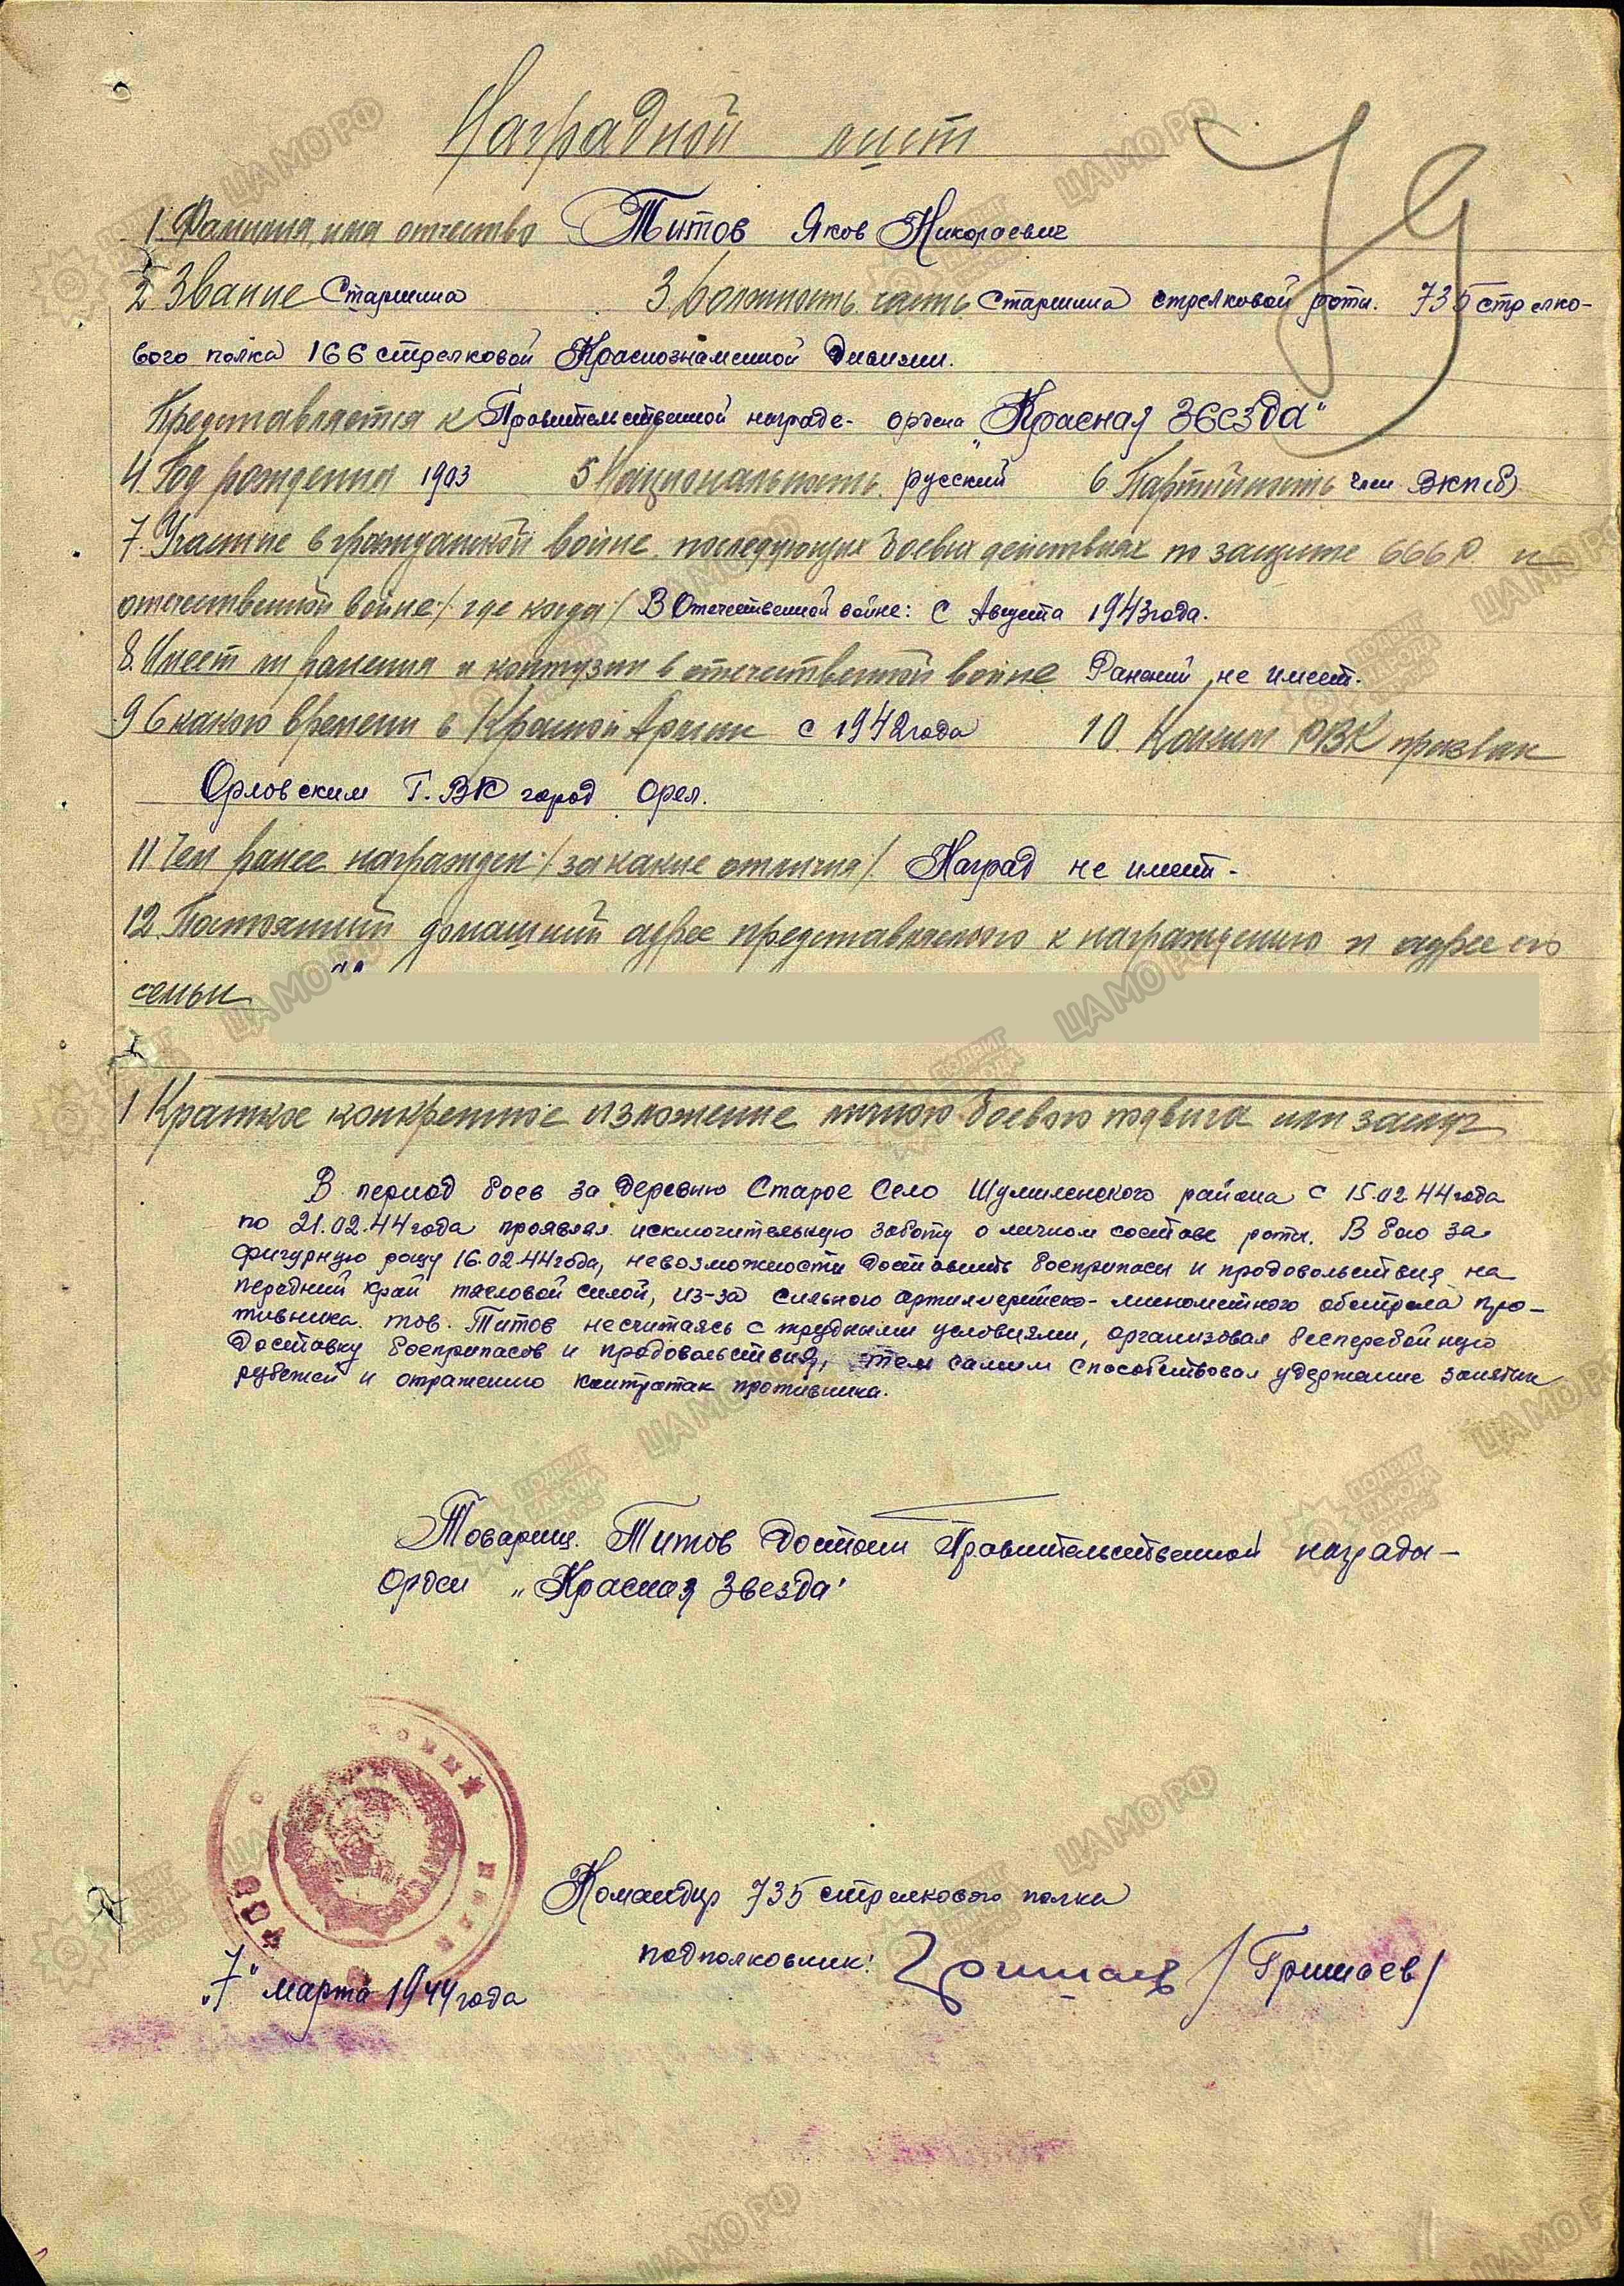 Наградной лист
79
1. Фамилия, имя отчество Титов Яков Николаевич
2 Звание Старшина 3. Должность, часть Старшина стрелковой роты. 735 стрелко-
вого полка 166 стрелковой Краснознаменной Дивизии.
Представляется к Правительственной награде- ордена „Красная Звезда"
4. Год рождения 1903 5 Национальность русский 6 Партийность член ВКП(б)
7. Участие в гражданской войне, последующих боевых действиях по защите СССР и
отечественной войне /где когда/ В Отечественной войне: с Августа 1943 года.
8. Имеет ли ранения и контузии в отечественной войне Ранений не имеет.
9 С какого времени в Красной Армии с 1942 года 10. Каким РВК призван
Орловским Г.ВК город Орел.
11 Чем ранее награжден /за какие отличия/ Наград не имеет-
12. Постоянный домашний адрес представляемого к награждению и адрес его
семьи
1 Краткое конкретное изложение личного боевого подвига или заслуг
В период боев за деревню Старое Село Шумиленского района с 15.02.44 года
по 21.02.44 года проявлял исключительную заботу о личном составе роты. В бою за
фигурную рощу 16.02.44 года, невозможности доставить боеприпасы и продовольствия на
передний край тягловой силой, из-за сильного артиллерийско-минометного обстрела про-
тивника. тов. Титов несчитаясь с трудными условиями, организовал бесперебойную
доставку боеприпасов и продовольствия, этем самим способствовал удержание занятых
рубежей и отражению контратак противника.
Товарищ. Титов достоин Правительственной награды-
Орден „Красная Звезда"
Командир 735 стрелкового полка
подполковник: /Гришаев/
„7" марта 1944 года